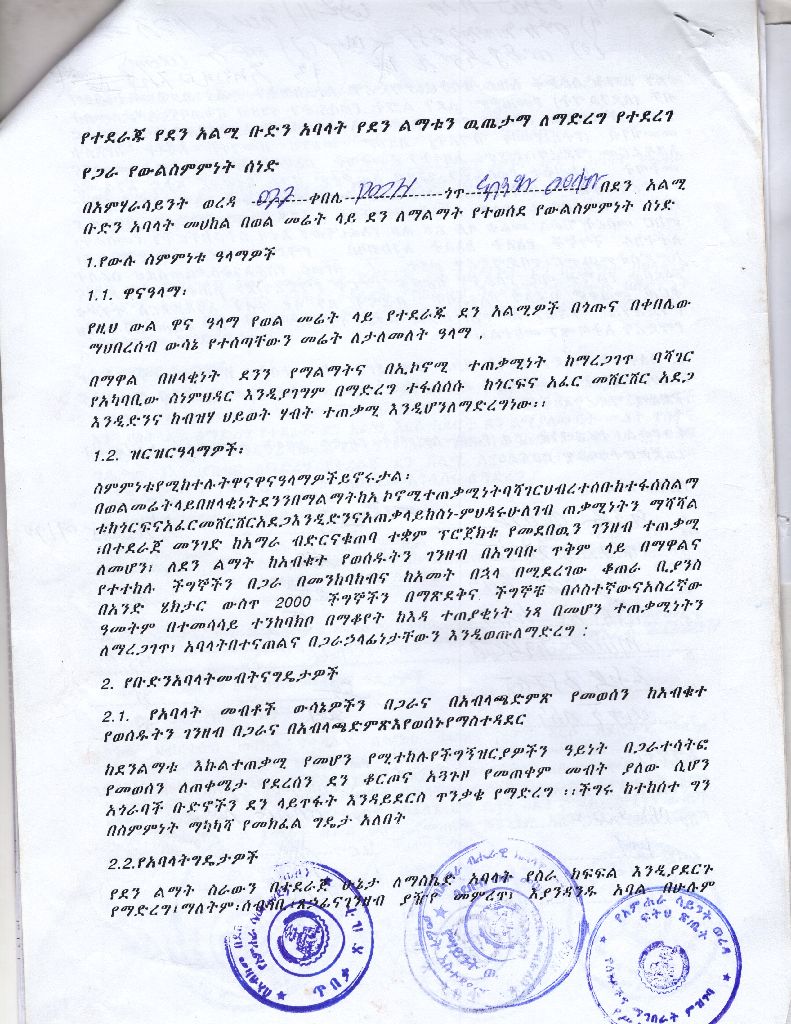 የተደራጁ የደን አልሚ ቡድን አባላት የደን ልማቱን ዉጤታማ ለማድረግ የተደረገ
የጋራ የውልስምምነት ሰነድ
በአምሃራሳይንት ወረዳ 022 ቀበሌ ጎጥ በደን አልሚ
ቡድን አባላት መሀከል በወል መሬት ላይ ደን ለማልማት የተወሰደ የውልስምምነት ሰነድ
1.የውሉ ስምምነቱ ዓላማዎች
1.1. ዋናዓላማ፡
የዚህ ውል ዋና ዓላማ የወል መሬት ላይ የተደራጁ ደን አልሚዎች በጎጡና በቀበሌው
ማህበረሰብ ውሳኔ የተሰጣቸውን መሬት ለታለመለት ዓላማ .
በማዋል በዘላቂነት ደንን የማልማትና በኢኮኖሚ ተጠቃሚነት ከማረጋገጥ ባሻገር
የአካባቢው ስነምህዳር እንዲያገግም በማድረግ ተፋሰሱ ከጎርፍና አፈር መሸርሸር አደጋ
እንዲድንና ከብዝሃ ህይወት ሃብት ተጠቃሚ እንዲሆንለማድረግነው፡፡
1.2. ዝርዝርዓላማዎች፡
ስምምነቱየሚከተሉትዋናዋናዓላማዎችይኖሩታል፡
በወልመሬትላይበዘላቂነትደንንበማልማትከኢኮኖሚተጠቃሚነትባሻገርህብረተሰቡከተፋሰስልማ
ቱከጎርፍናአፈርመሸርሸርአደጋእንዲድንናአጠቃላይከስነ-ምህዳሩሁለገብ ጠቃሚነትን ማሻሻል
፣በተደራጀ መንገድ ከአማራ ብድርናቁጠባ ተቋም ፕሮጀክቱ የመደበዉን ገንዘብ ተጠቃሚ
ለመሆን፣ ለደን ልማት ከአብቁተ የወሰዱትን ገንዘብ በአግባቡ ጥቅም ላይ በማዋልና
የተተከሉ ችግኞችን በጋራ በመንከባከብና ከአመት በኋላ በሚደረገው ቆጠራ ቢያንስ
በአንድ ሄክታር ውስጥ 2000 ችግኞችን በማጽደቅና ችግኞቹ በሶስተኛውናአስረኛው
ዓመትም በተመሳሳይ ተንከባክቦ በማቆየት ከእዳ ተጠያቂነት ነጻ በመሆን ተጠቃሚነትን
ለማረጋገጥ፣ አባላትበተናጠልና በጋራኃላፊነታቸውን እንዲወጡለማድረግ :
2. የቡድንአባላትመብትናግዴታዎች
2.1. የአባላት መብቶች ውሳኔዎችን በጋራና በአብላጫድምጽ የመወሰን ከአብቁተ
የወሰዱትን ገንዘብ በጋራና በአብላጫድምጽእየወሰኑየማስተዳደር
ከደንልማቱ እኩልተጠቃሚ የመሆን የሚተከሉየችግኝዝርያዎችን ዓይነት በጋራተሳትፎ
የመወሰን ለጠቀሜታ የደረሰን ደን ቆርጦና አጓጉዞ የመጠቀም መብት ያለው ሲሆን
አጎራባች ቡድኖችን ደን ላይጥፋት እንዳይደርስ ጥንቃቄ የማድረግ ፡፡ችግሩ ከተከሰተ ግን
በስምምነት ማካካሻ የመክፈል ግዴታ አለበት
2.2.የአባላትግዴታዎች
የደን ልማት ስራውን በተደራጀ ሁኔታ ለማስኬድ አባላት የስራ ክፍፍል እንዲያደርጉ
የማድረግ፣ማለትም፡ሰብሳቢ፣ጸኃፊናገንዘብ ያዥየ መምረጥ፣ እያንዳንዱ አባል በሁሉም
ጥበቃ
የአምሐራ ሳይንት ወረዳ
ፍትህ ጽ/ቤት